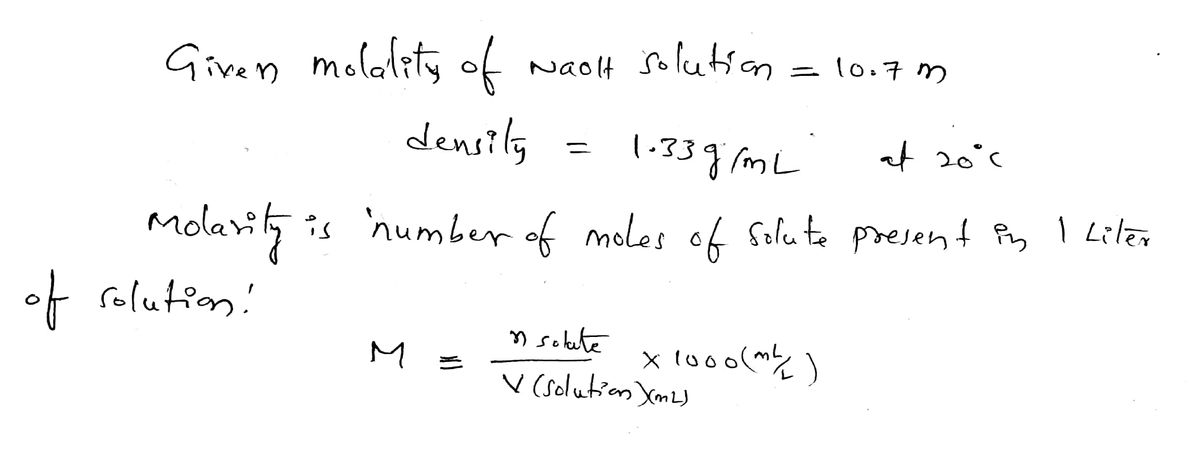 Given molality of NaOH solution = 10.7 m
density = 1.33 g/mL at 20°C
Molarity is 'number of moles of solute present in 1 Liter
of solution!
M = n solute / V (solution)(mL) × 1000 (mL/L)